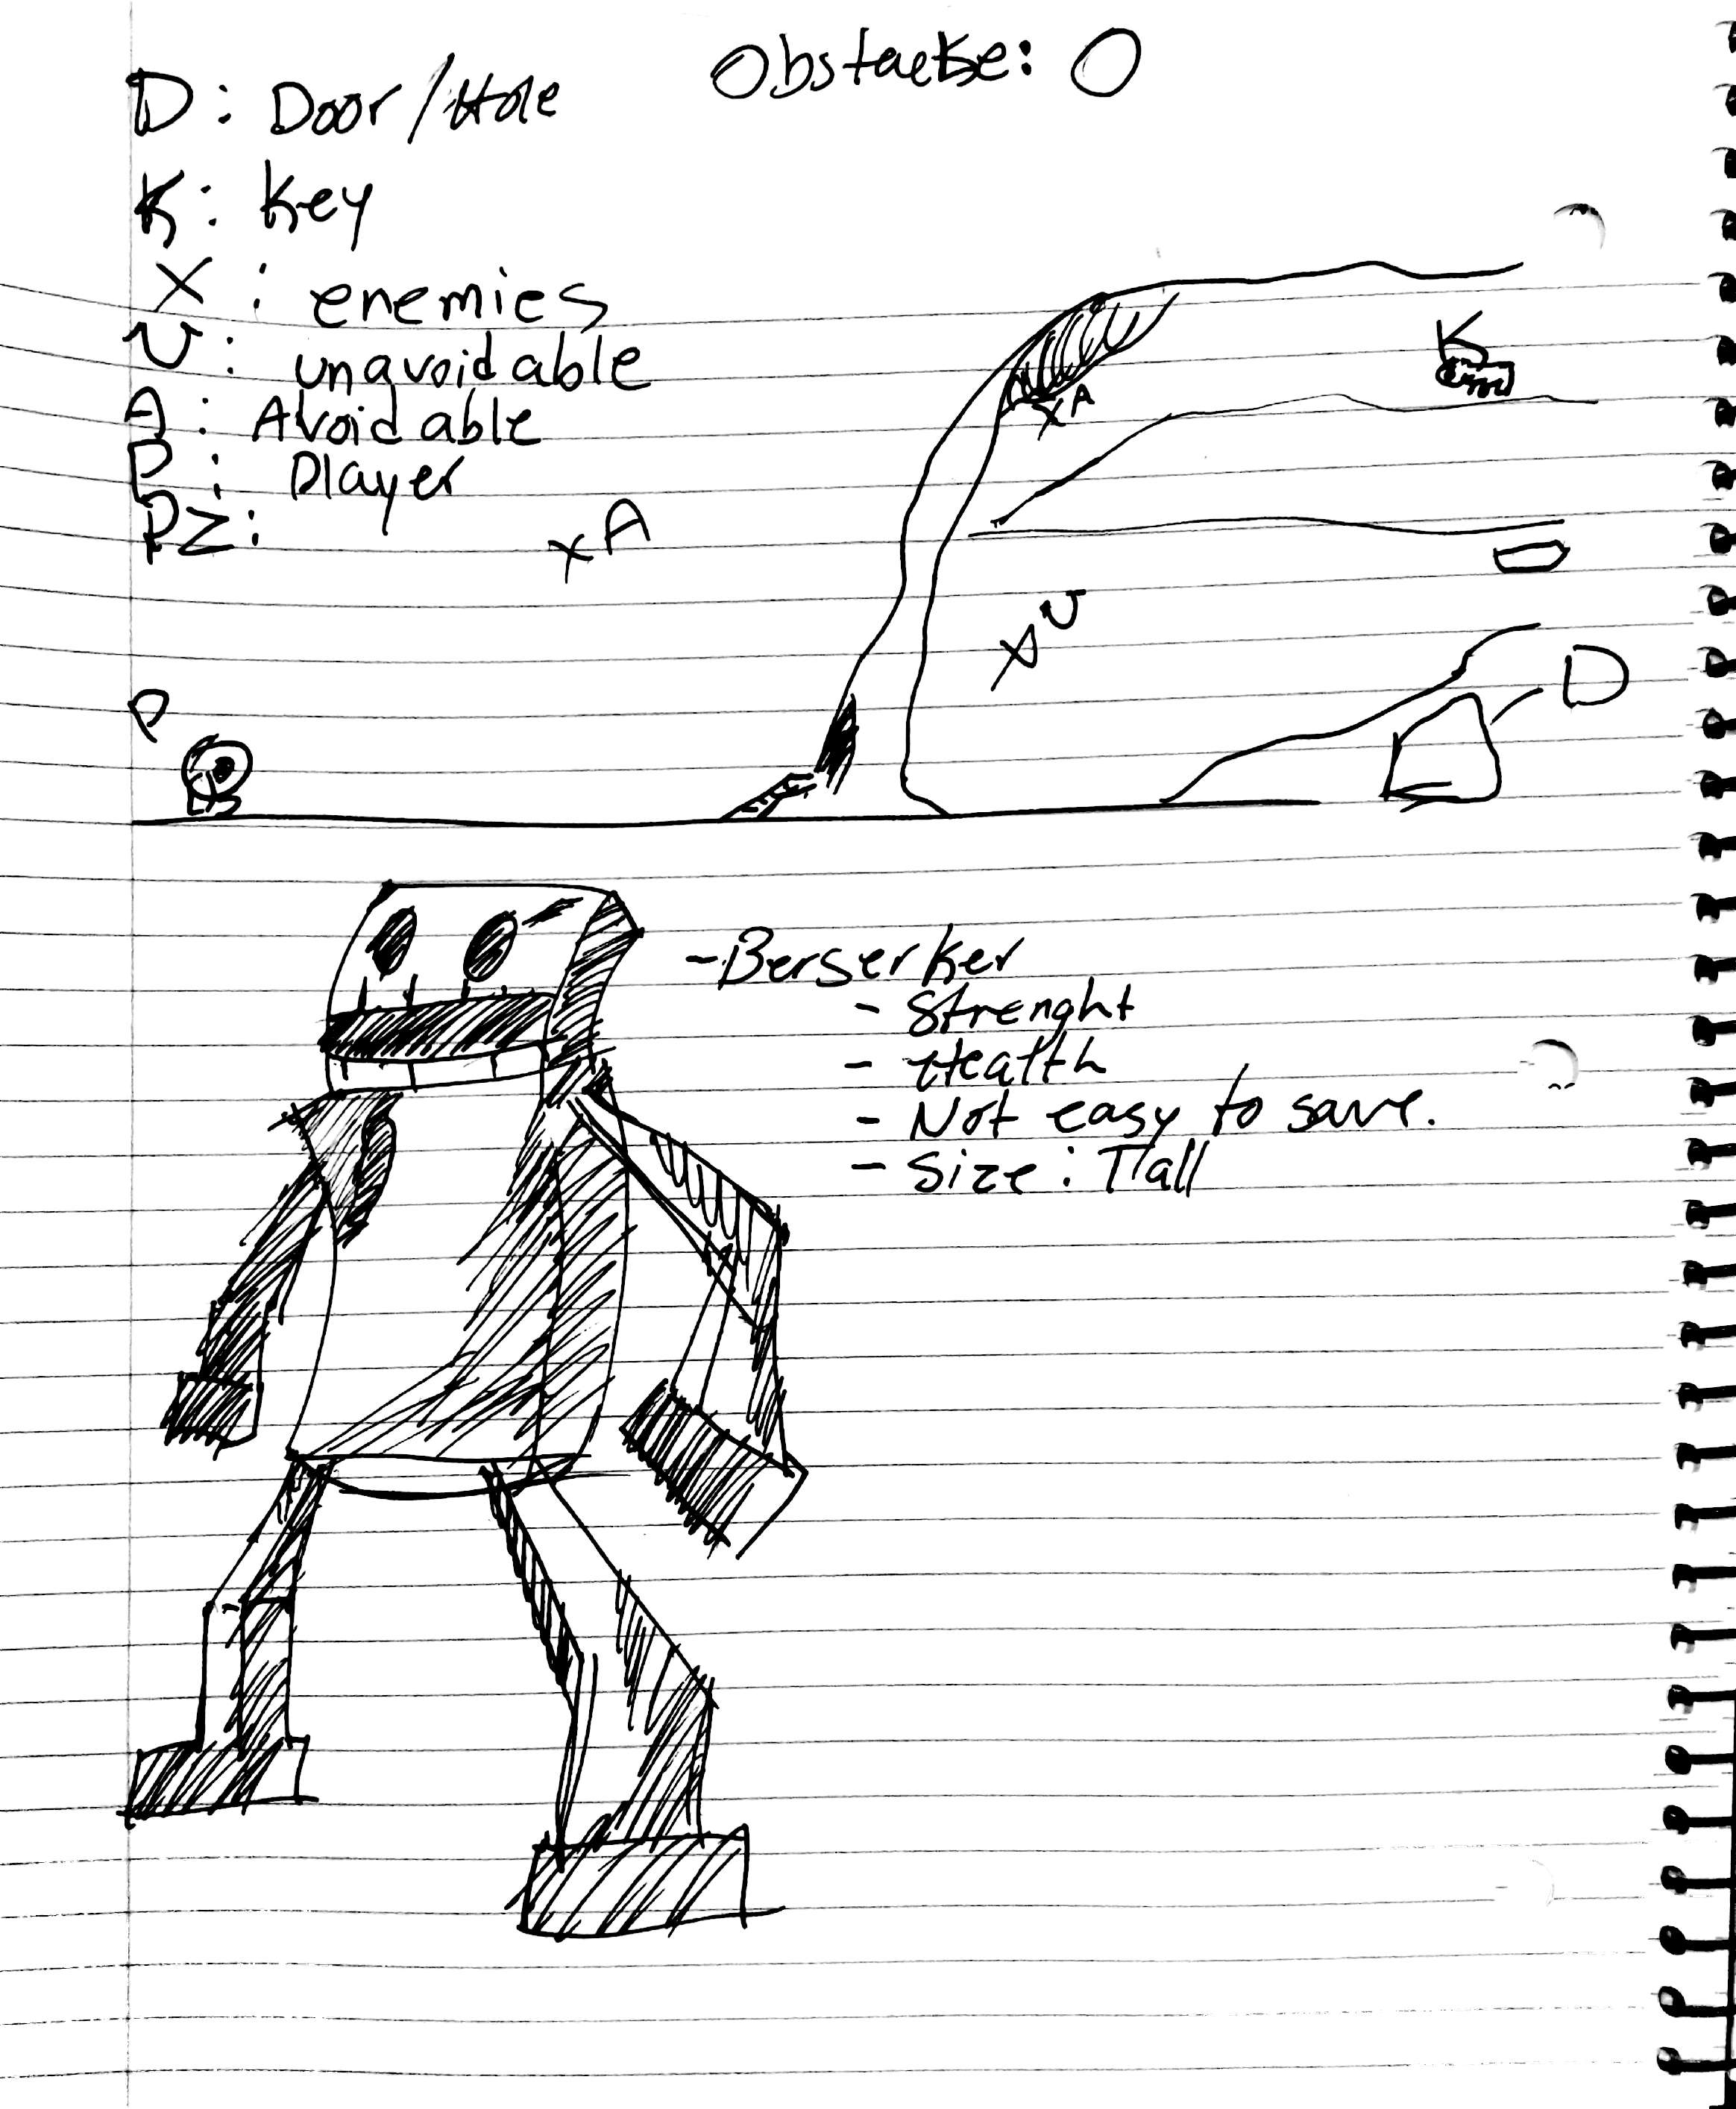 Obstacle: O
D: Door/Hole
K: Key
X: enemies
U: unavoidable
A: Avoidable
P: Player
PZ:
X A
K
X A
X U
D
P
-Berserker
- Strenght
- Health
- Not easy to save.
- Size: Tall